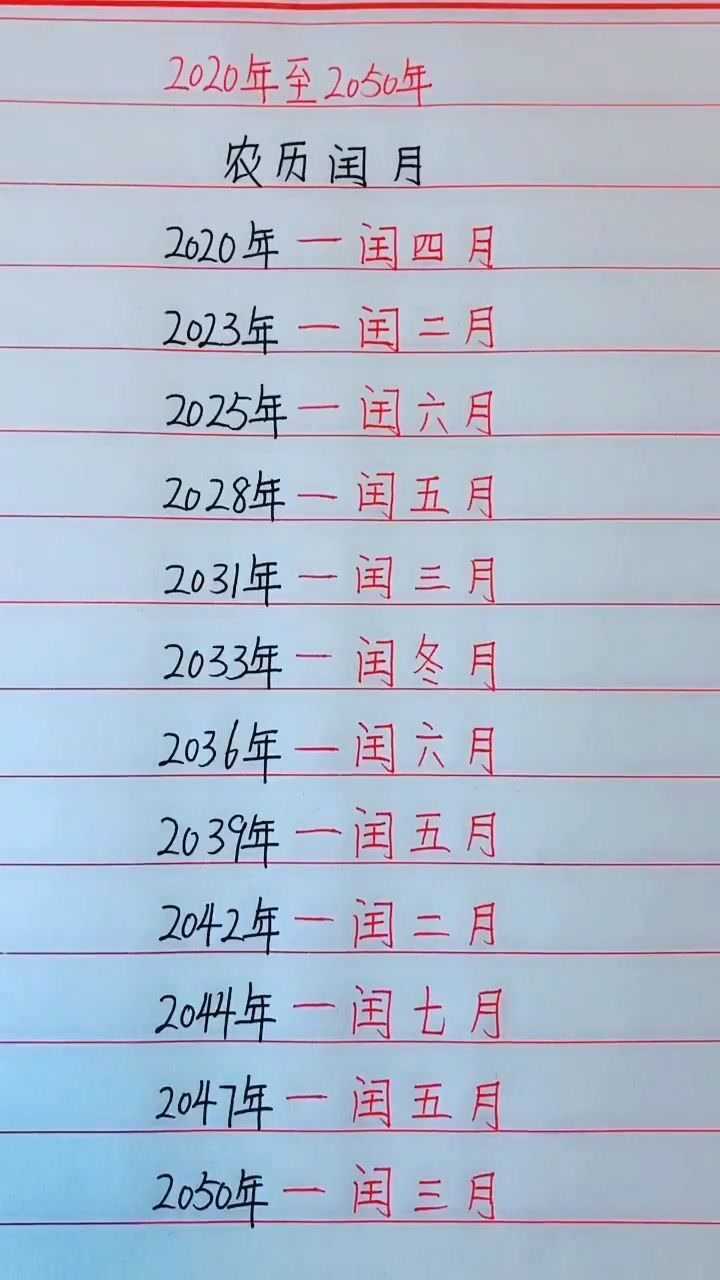 2020年至2050年
农历闰月
2020年一闰四月
2023年一闰二月
2025年一闰六月
2028年一闰五月
2031年一闰三月
2033年一闰冬月
2036年一闰六月
2039年一闰五月
2042年一闰二月
2044年一闰七月
2047年一闰五月
2050年一闰三月